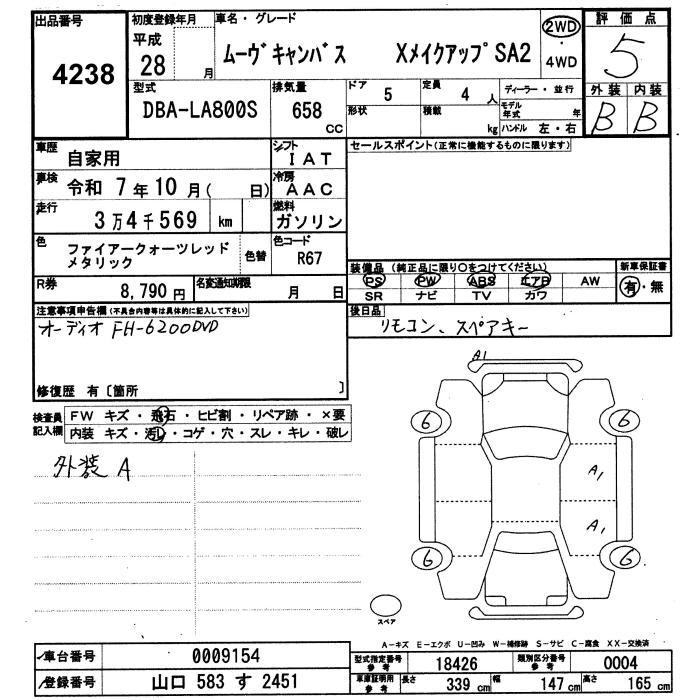 出品番号 4238
初度登録年月 平成 28 月
車名・グレード ムーヴキャンバス XメイクアップSA2
2WD・4WD
評価点 5
外装 B 内装 B
型式 DBA-LA800S
排気量 658 cc
ドア 5
形状
定員 4 人
積載 kg
ディーラー・並行
モデル年式 年
ハンドル 左・右
車歴 自家用
シフト IAT
車検 令和 7年10月( 日)
冷房 AAC
走行 3万4千569 km
燃料 ガソリン
色 ファイアークォーツレッドメタリック
色替
色コード R67
R券 8,790円
名変通知期限 月 日
セールスポイント(正常に機能するものに限ります)
装備品(純正品に限り○をつけてください)
PS PW ABS エアB AW
SR ナビ TV カワ
新車保証書 有・無
後日品 リモコン、スペアキー
注意事項申告欄(不具合内容等は具体的に記入して下さい)
オーディオ FH-6200DVD
修復歴 有〔箇所 〕
検査員記入欄
FW キズ・飛石・ヒビ割・リペア跡・×要
内装 キズ・汚れ・コゲ・穴・スレ・キレ・破レ
外装 A
A1
6 6
A1
A1
6 6
スペア
A-キズ E-エクボ U-凹み W-補修跡 S-サビ C-腐食 XX-交換済
車台番号 0009154
登録番号 山口 583 す 2451
型式指定番号参考 18426
類別区分番号参考 0004
車庫証明用参考 長さ 339 cm 幅 147 cm 高さ 165 cm